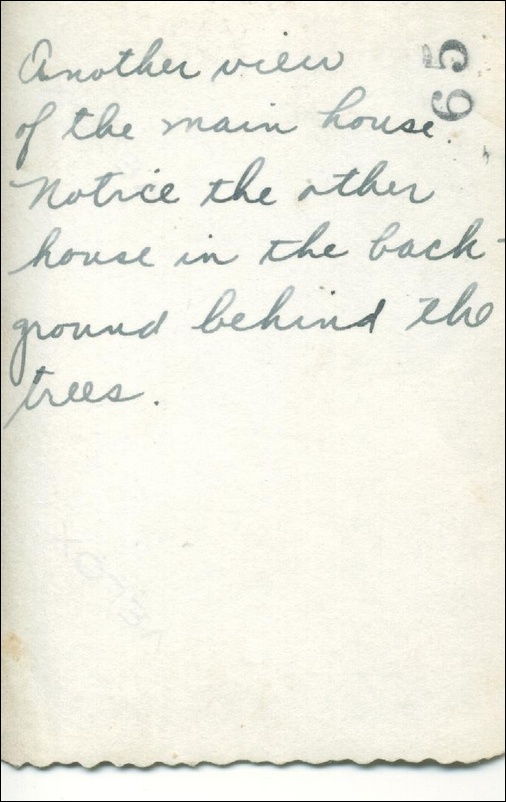 Another view
of the main house.
Notice the other
house in the back-
ground behind the
trees.